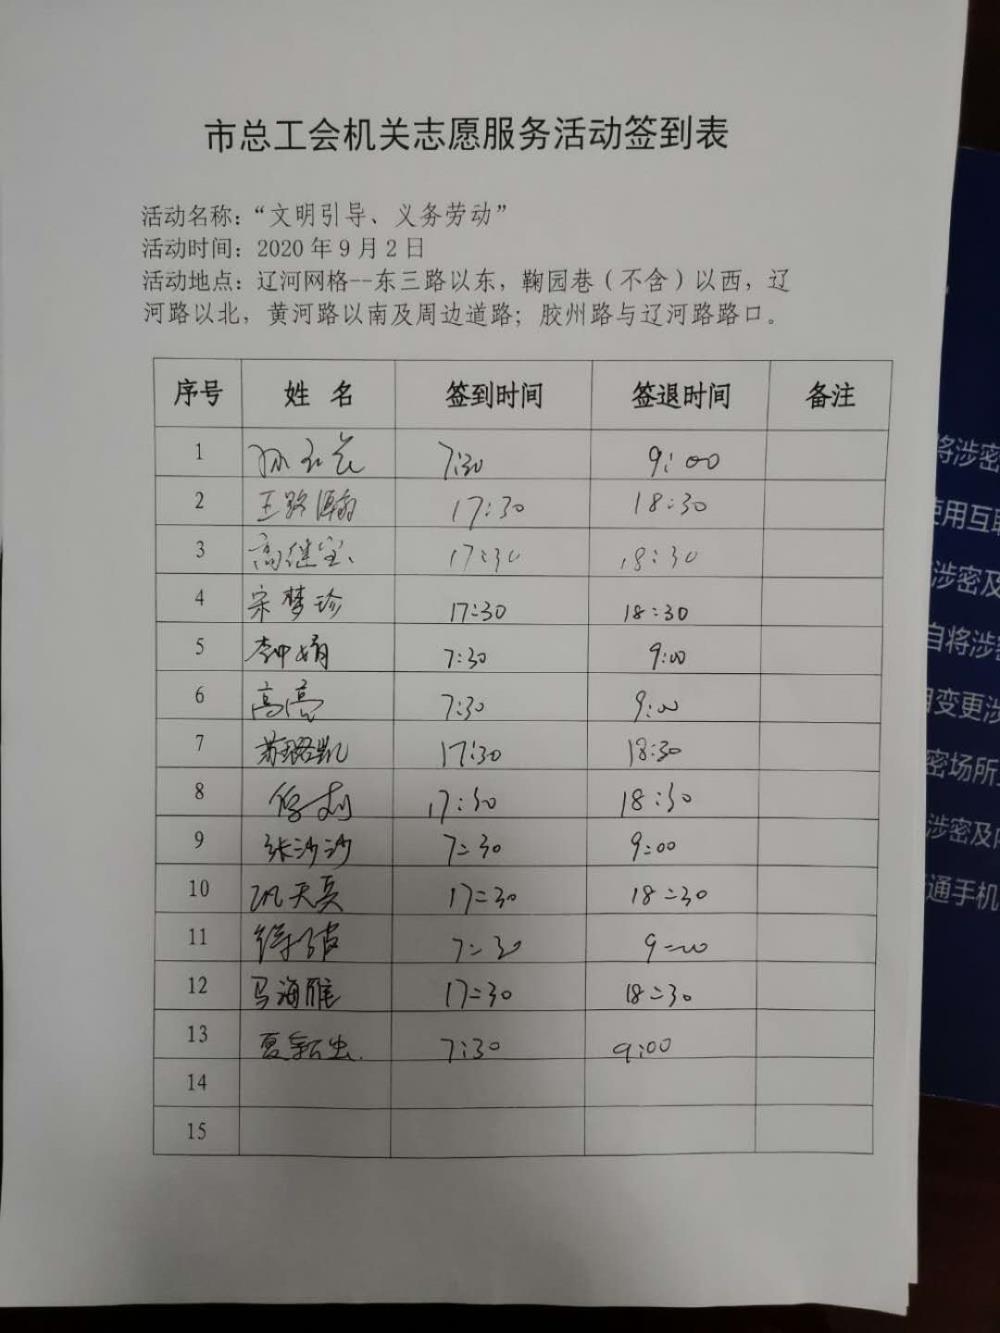 市总工会机关志愿服务活动签到表
活动名称：“文明引导、义务劳动”
活动时间：2020 年 9 月 2 日
活动地点：辽河网格--东三路以东，鞠园巷（不含）以西，辽
河路以北，黄河路以南及周边道路；胶州路与辽河路路口。
序号 姓 名 签到时间 签退时间 备注
1 7:30 9:00
2 王路瀚 17:30 18:30
3 高继宝 17:30 18:30
4 宋梦珍 17:30 18:30
5 李娟 7:30 9:00
6 高亮 7:30 9:00
7 苏璐凯 17:30 18:30
8 17:30 18:30
9 张沙沙 7:30 9:00
10 巩天真 17:30 18:30
11 7:30 9:00
12 马海雕 17:30 18:30
13 夏 7:30 9:00
14
15
将涉密
使用互联
涉密及
自将涉密
变更涉
密场所
涉密及
通手机